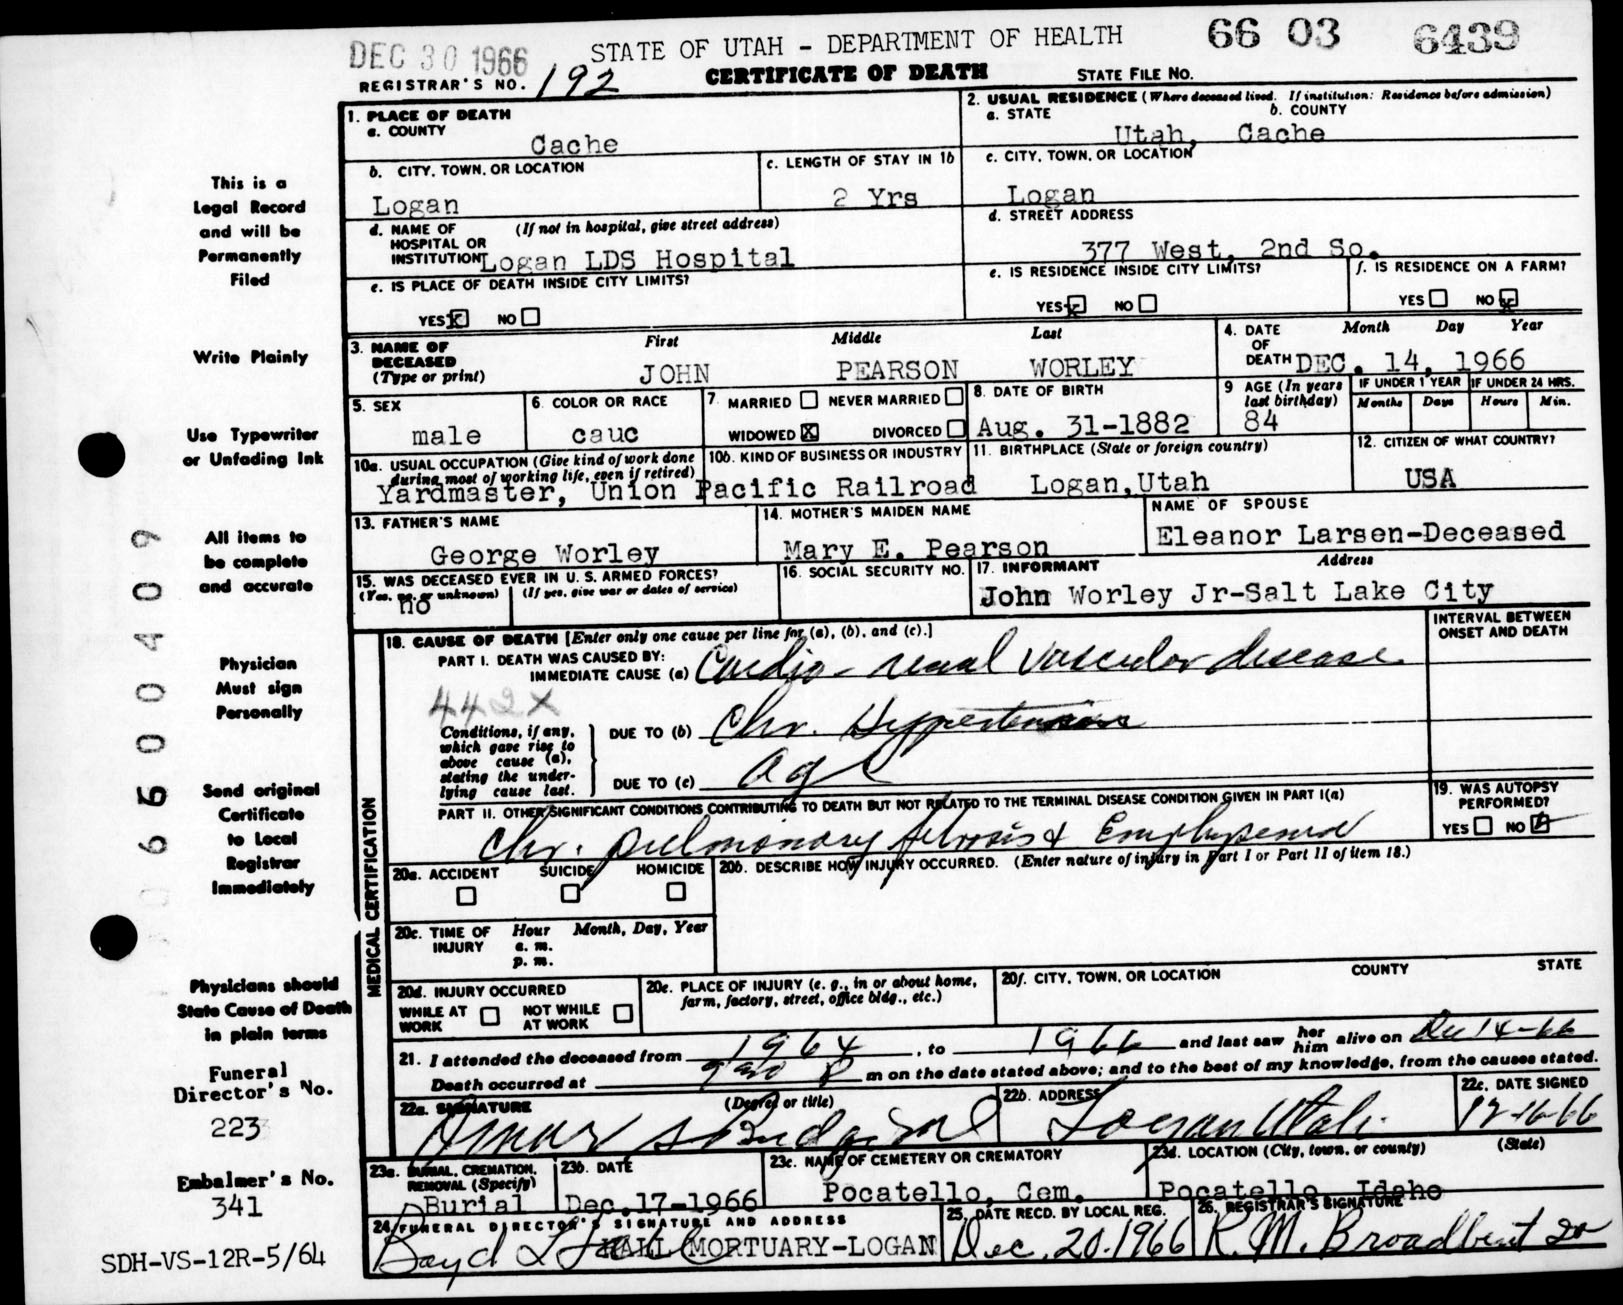 DEC 30 1966
STATE OF UTAH - DEPARTMENT OF HEALTH
66 03 6439
REGISTRAR'S NO. 192
CERTIFICATE OF DEATH
STATE FILE No.
1. PLACE OF DEATH
a. COUNTY
Cache
2. USUAL RESIDENCE (Where deceased lived. If institution: Residence before admission)
a. STATE b. COUNTY
Utah, Cache
b. CITY, TOWN, OR LOCATION
Logan
c. LENGTH OF STAY IN 1b
2 Yrs
c. CITY, TOWN, OR LOCATION
Logan
d. NAME OF HOSPITAL OR INSTITUTION (If not in hospital, give street address)
Logan LDS Hospital
d. STREET ADDRESS
377 West, 2nd So.
e. IS PLACE OF DEATH INSIDE CITY LIMITS?
YES X NO
e. IS RESIDENCE INSIDE CITY LIMITS?
YES X NO
f. IS RESIDENCE ON A FARM?
YES NO X
3. NAME OF DECEASED (Type or print)
First Middle Last
JOHN PEARSON WORLEY
4. DATE OF DEATH Month Day Year
DEC. 14, 1966
5. SEX
male
6. COLOR OR RACE
cauc
7. MARRIED NEVER MARRIED
WIDOWED X DIVORCED
8. DATE OF BIRTH
Aug. 31-1882
9 AGE (In years last birthday)
84
IF UNDER 1 YEAR IF UNDER 24 HRS.
Months Days Hours Min.
10a. USUAL OCCUPATION (Give kind of work done during most of working life, even if retired)
10b. KIND OF BUSINESS OR INDUSTRY
Yardmaster, Union Pacific Railroad
11. BIRTHPLACE (State or foreign country)
Logan,Utah
12. CITIZEN OF WHAT COUNTRY?
USA
13. FATHER'S NAME
George Worley
14. MOTHER'S MAIDEN NAME
Mary E. Pearson
NAME OF SPOUSE
Eleanor Larsen-Deceased
15. WAS DECEASED EVER IN U. S. ARMED FORCES?
(Yes, no, or unknown) (If yes, give war or dates of service)
no
16. SOCIAL SECURITY NO.
17. INFORMANT Address
John Worley Jr-Salt Lake City
MEDICAL CERTIFICATION
18. CAUSE OF DEATH [Enter only one cause per line for (a), (b), and (c).]
INTERVAL BETWEEN ONSET AND DEATH
PART I. DEATH WAS CAUSED BY:
IMMEDIATE CAUSE (a) Cardio-renal vascular disease
442X
Conditions, if any, which gave rise to above cause (a), stating the underlying cause last.
DUE TO (b) Chr. Hypertension
DUE TO (c) age
PART II. OTHER SIGNIFICANT CONDITIONS CONTRIBUTING TO DEATH BUT NOT RELATED TO THE TERMINAL DISEASE CONDITION GIVEN IN PART I(a)
Chr. pulmonary fibrosis & Emphysema
19. WAS AUTOPSY PERFORMED?
YES NO
20a. ACCIDENT SUICIDE HOMICIDE
20b. DESCRIBE HOW INJURY OCCURRED. (Enter nature of injury in Part I or Part II of item 18.)
20c. TIME OF INJURY Hour Month, Day, Year
a. m.
p. m.
20d. INJURY OCCURRED
WHILE AT WORK NOT WHILE AT WORK
20e. PLACE OF INJURY (e. g., in or about home, farm, factory, street, office bldg., etc.)
20f. CITY, TOWN, OR LOCATION COUNTY STATE
21. I attended the deceased from 1964, to 1966 and last saw her him alive on Dec 14-66
Death occurred at 9 20 P m on the date stated above; and to the best of my knowledge, from the causes stated.
22a. SIGNATURE (Degree or title)
Omar S Budge
22b. ADDRESS
Logan Utah.
22c. DATE SIGNED
12-16-66
23a. BURIAL, CREMATION, REMOVAL (Specify)
Burial
23b. DATE
Dec.17-1966
23c. NAME OF CEMETERY OR CREMATORY
Pocatello, Cem.
23d. LOCATION (City, town, or county) (State)
Pocatello, Idaho
24. FUNERAL DIRECTOR'S SIGNATURE AND ADDRESS
Boyd L Hall
HALL MORTUARY-LOGAN
25. DATE RECD. BY LOCAL REG.
Dec. 20. 1966
26. REGISTRAR'S SIGNATURE
R. M. Broadbent
This is a
Legal Record
and will be
Permanently
Filed
Write Plainly
Use Typewriter
or Unfading Ink
All items to
be complete
and accurate
Physician
Must sign
Personally
Send original
Certificate
to Local
Registrar
Immediately
Physicians should
State Cause of Death
in plain terms
Funeral
Director's No.
223
Embalmer's No.
341
SDH-VS-12R-5/64